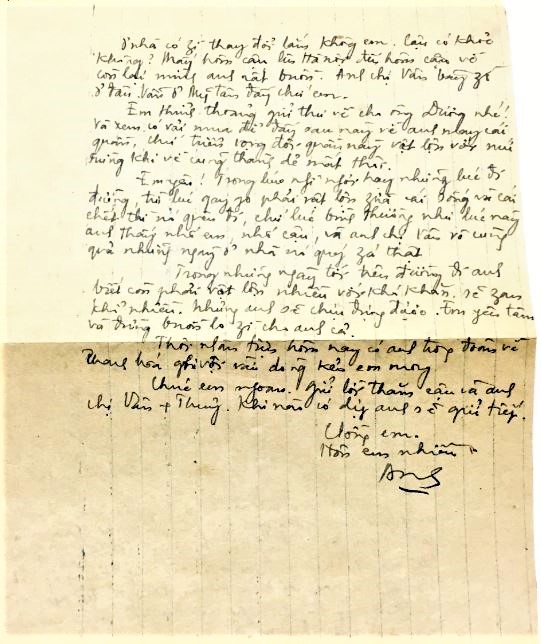 ở nhà có zì thay đổi lắm không em. Cậu có khỏe
không? Mấy hôm cậu lên Hà nội, từ hôm cậu về
còn lại mình anh rất buồn. Anh chị Vân bây zờ
ở đâu. Vẫn ở Mỹ tân đấy chứ em.
Em thỉnh thoảng gửi thư về cho ông Dương nhé!
Và xem có vải mua để đấy sau này về anh may cái
quần, chứ tiêu vật lộn với núi
rừng khi về cũng thôi.
Em yêu! Trong lúc nghỉ ngơi hay những lúc đi
đường, từ lúc phải vật lộn zữa cái sống và cái
chết thì nó quên đi, chứ lúc bình thường như lúc này
anh thấy nhớ em, nhớ cậu, và anh chị Vân vô cùng
quả những ngày ở nhà nó quý zá thật
Trong những ngày tới trên đường đi anh
biết còn phải vật lộn nhiều với khó khăn, sẽ zan
khổ nhiều. Nhưng anh sẽ chịu đựng được. Em yên tâm
và đừng buồn lo zì cho anh cả.
Thôi nhân tiện hôm nay có anh trong đoàn về
Thanh hoá gửi vội vài dòng kẻo em mong
Chúc em ngoan. Gửi lời thăm cậu và anh
chị Vân + Thung. Khi nào có dịp anh sẽ gửi tiếp.
Chồng em.
Hôn em nhiều
Anh